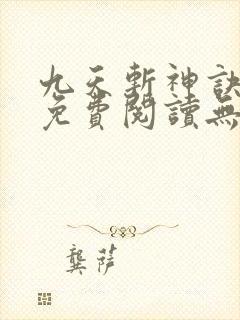 九天斬神訣
免費閱讀無
龔萨